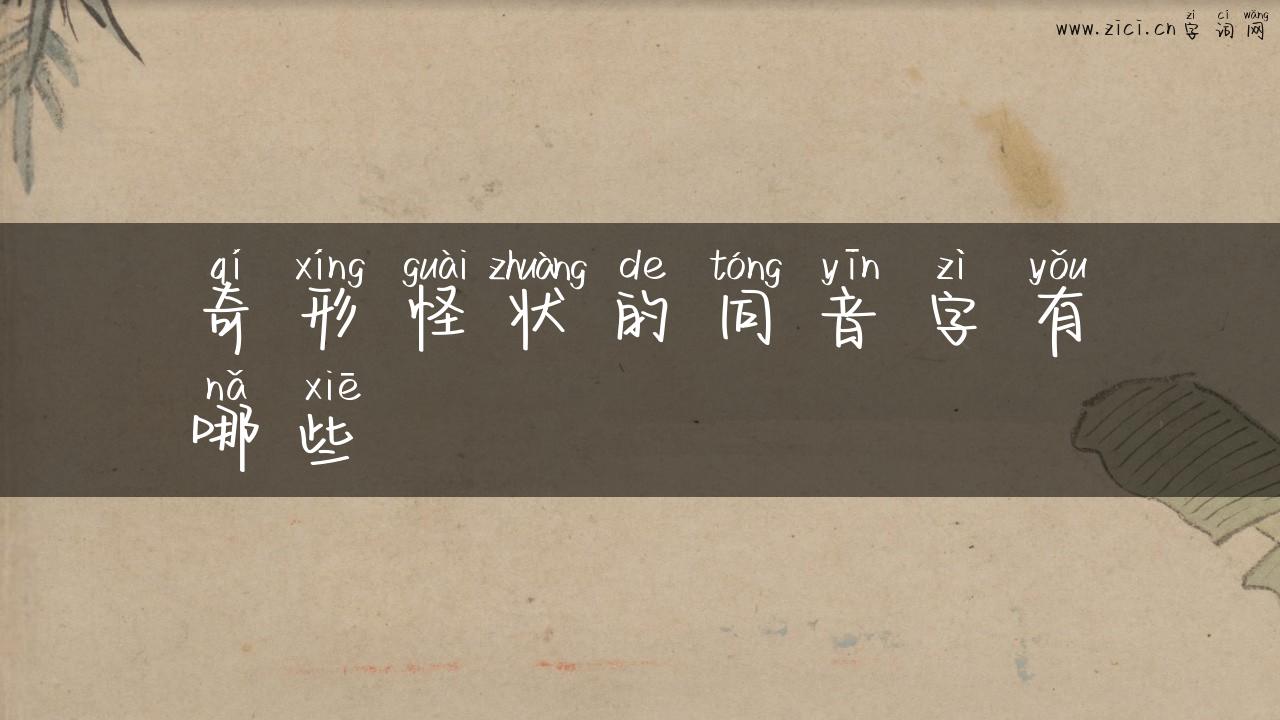 zì cí wǎng
www.zici.cn 字词网
qí xíng guài zhuàng de tóng yīn zì yǒu
奇形怪状的同音字有
nǎ xiē
哪些